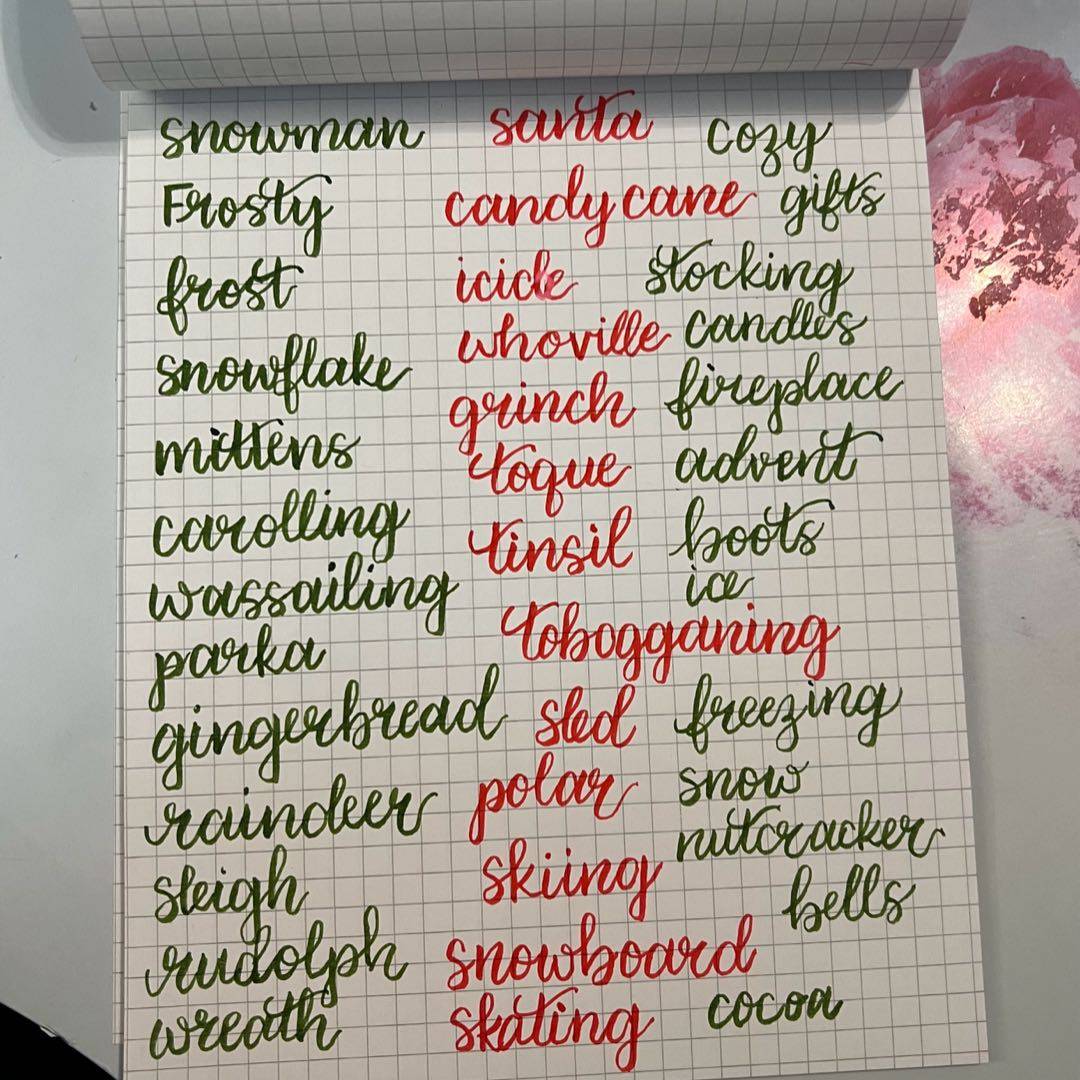 snowman santa cozy
Frosty candy cane gifts
frost icicle stocking
whoville candles
snowflake grinch fireplace
mittens toque advent
carolling tinsil boots
wassailing ice
parka tobogganing
gingerbread sled freezing
raindeer polar snow
nutcracker
sleigh skiing bells
rudolph snowboard
wreath skating cocoa